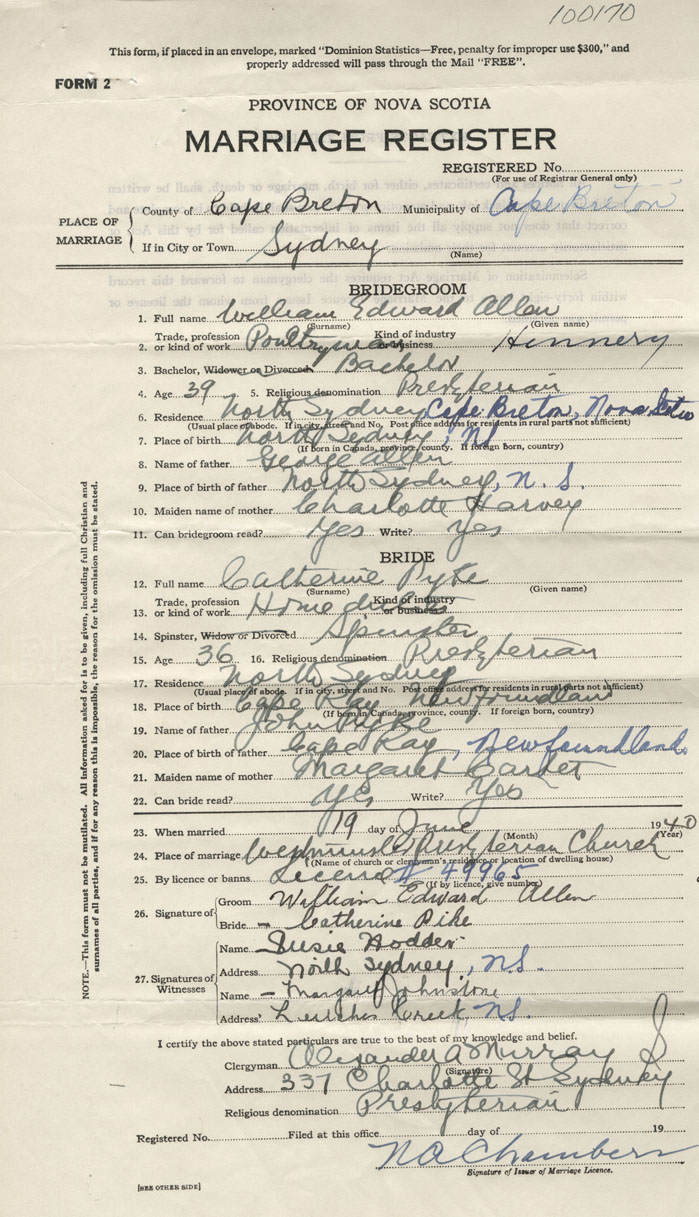 100170
This form, if placed in an envelope, marked "Dominion Statistics—Free, penalty for improper use $300," and
properly addressed will pass through the Mail "FREE".
FORM 2
PROVINCE OF NOVA SCOTIA
MARRIAGE REGISTER
REGISTERED No.
(For use of Registrar General only)
PLACE OF MARRIAGE
County of Cape Breton Municipality of Cape Breton
If in City or Town Sydney
(Name)
BRIDEGROOM
1. Full name William Edward Allen
(Surname) (Given name)
2. Trade, profession or kind of work Poultryman Kind of industry or business Hennery
3. Bachelor, Widower or Divorced Bachelor
4. Age 39 5. Religious denomination Presbyterian
6. Residence North Sydney Cape Breton, Nova Scotia
(Usual place of abode. If in city, street and No. Post office address for residents in rural parts not sufficient)
7. Place of birth North Sydney, NS
(If born in Canada, province, county. If foreign born, country)
8. Name of father George Allen
9. Place of birth of father North Sydney, N. S.
10. Maiden name of mother Charlotte Harvey
11. Can bridegroom read? Yes Write? Yes
BRIDE
12. Full name Catherine Pyke
(Surname) (Given name)
13. Trade, profession or kind of work Home duties Kind of industry or business
14. Spinster, Widow or Divorced Spinster
15. Age 36 16. Religious denomination Presbyterian
17. Residence North Sydney
(Usual place of abode. If in city, street and No. Post office address for residents in rural parts not sufficient)
18. Place of birth Cape Ray Newfoundland
(If born in Canada, province, county. If foreign born, country)
19. Name of father John Pyke
20. Place of birth of father Cape Ray, Newfoundland
21. Maiden name of mother Margaret
22. Can bride read? Yes Write? Yes
23. When married 19 day of June 1940
(Month) (Year)
24. Place of marriage Westminster Presbyterian Church
(Name of church or clergyman's residence or location of dwelling house)
25. By licence or banns License # 49965
(If by licence, give number)
26. Signature of
Groom William Edward Allen
Bride Catherine Pike
27. Signatures of Witnesses
Name Susie Hodder
Address North Sydney, NS.
Name Margaret Johnstone
Address Leitches Creek NS.
I certify the above stated particulars are true to the best of my knowledge and belief.
Clergyman Alexander A Murray
(Signature)
Address 337 Charlotte St Sydney
Religious denomination Presbyterian
Registered No. Filed at this office day of 19
N A Chambers
Signature of Issuer of Marriage Licence.
[SEE OTHER SIDE]
NOTE.—This form must not be mutilated. All information asked for is to be given, including full Christian and
surnames of all parties, and if for any reason this is impossible, the reason for the omission must be stated.